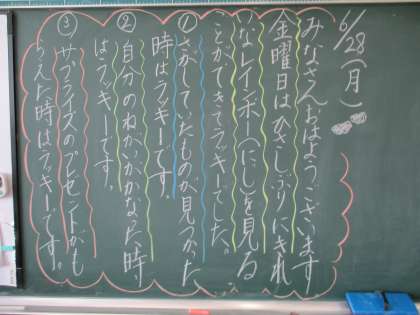 6/28(月)
みなさんおはようございます
金曜日はひさしぶりにきれ
いなレインボー(にじ)を見る
ことができてラッキーでした。
①さがしていたものが見つかった
時はラッキーです。
②自分のねがいがかなった時。
はラッキーです。
③サプライズのプレゼントがも
らえた時はラッキーです。